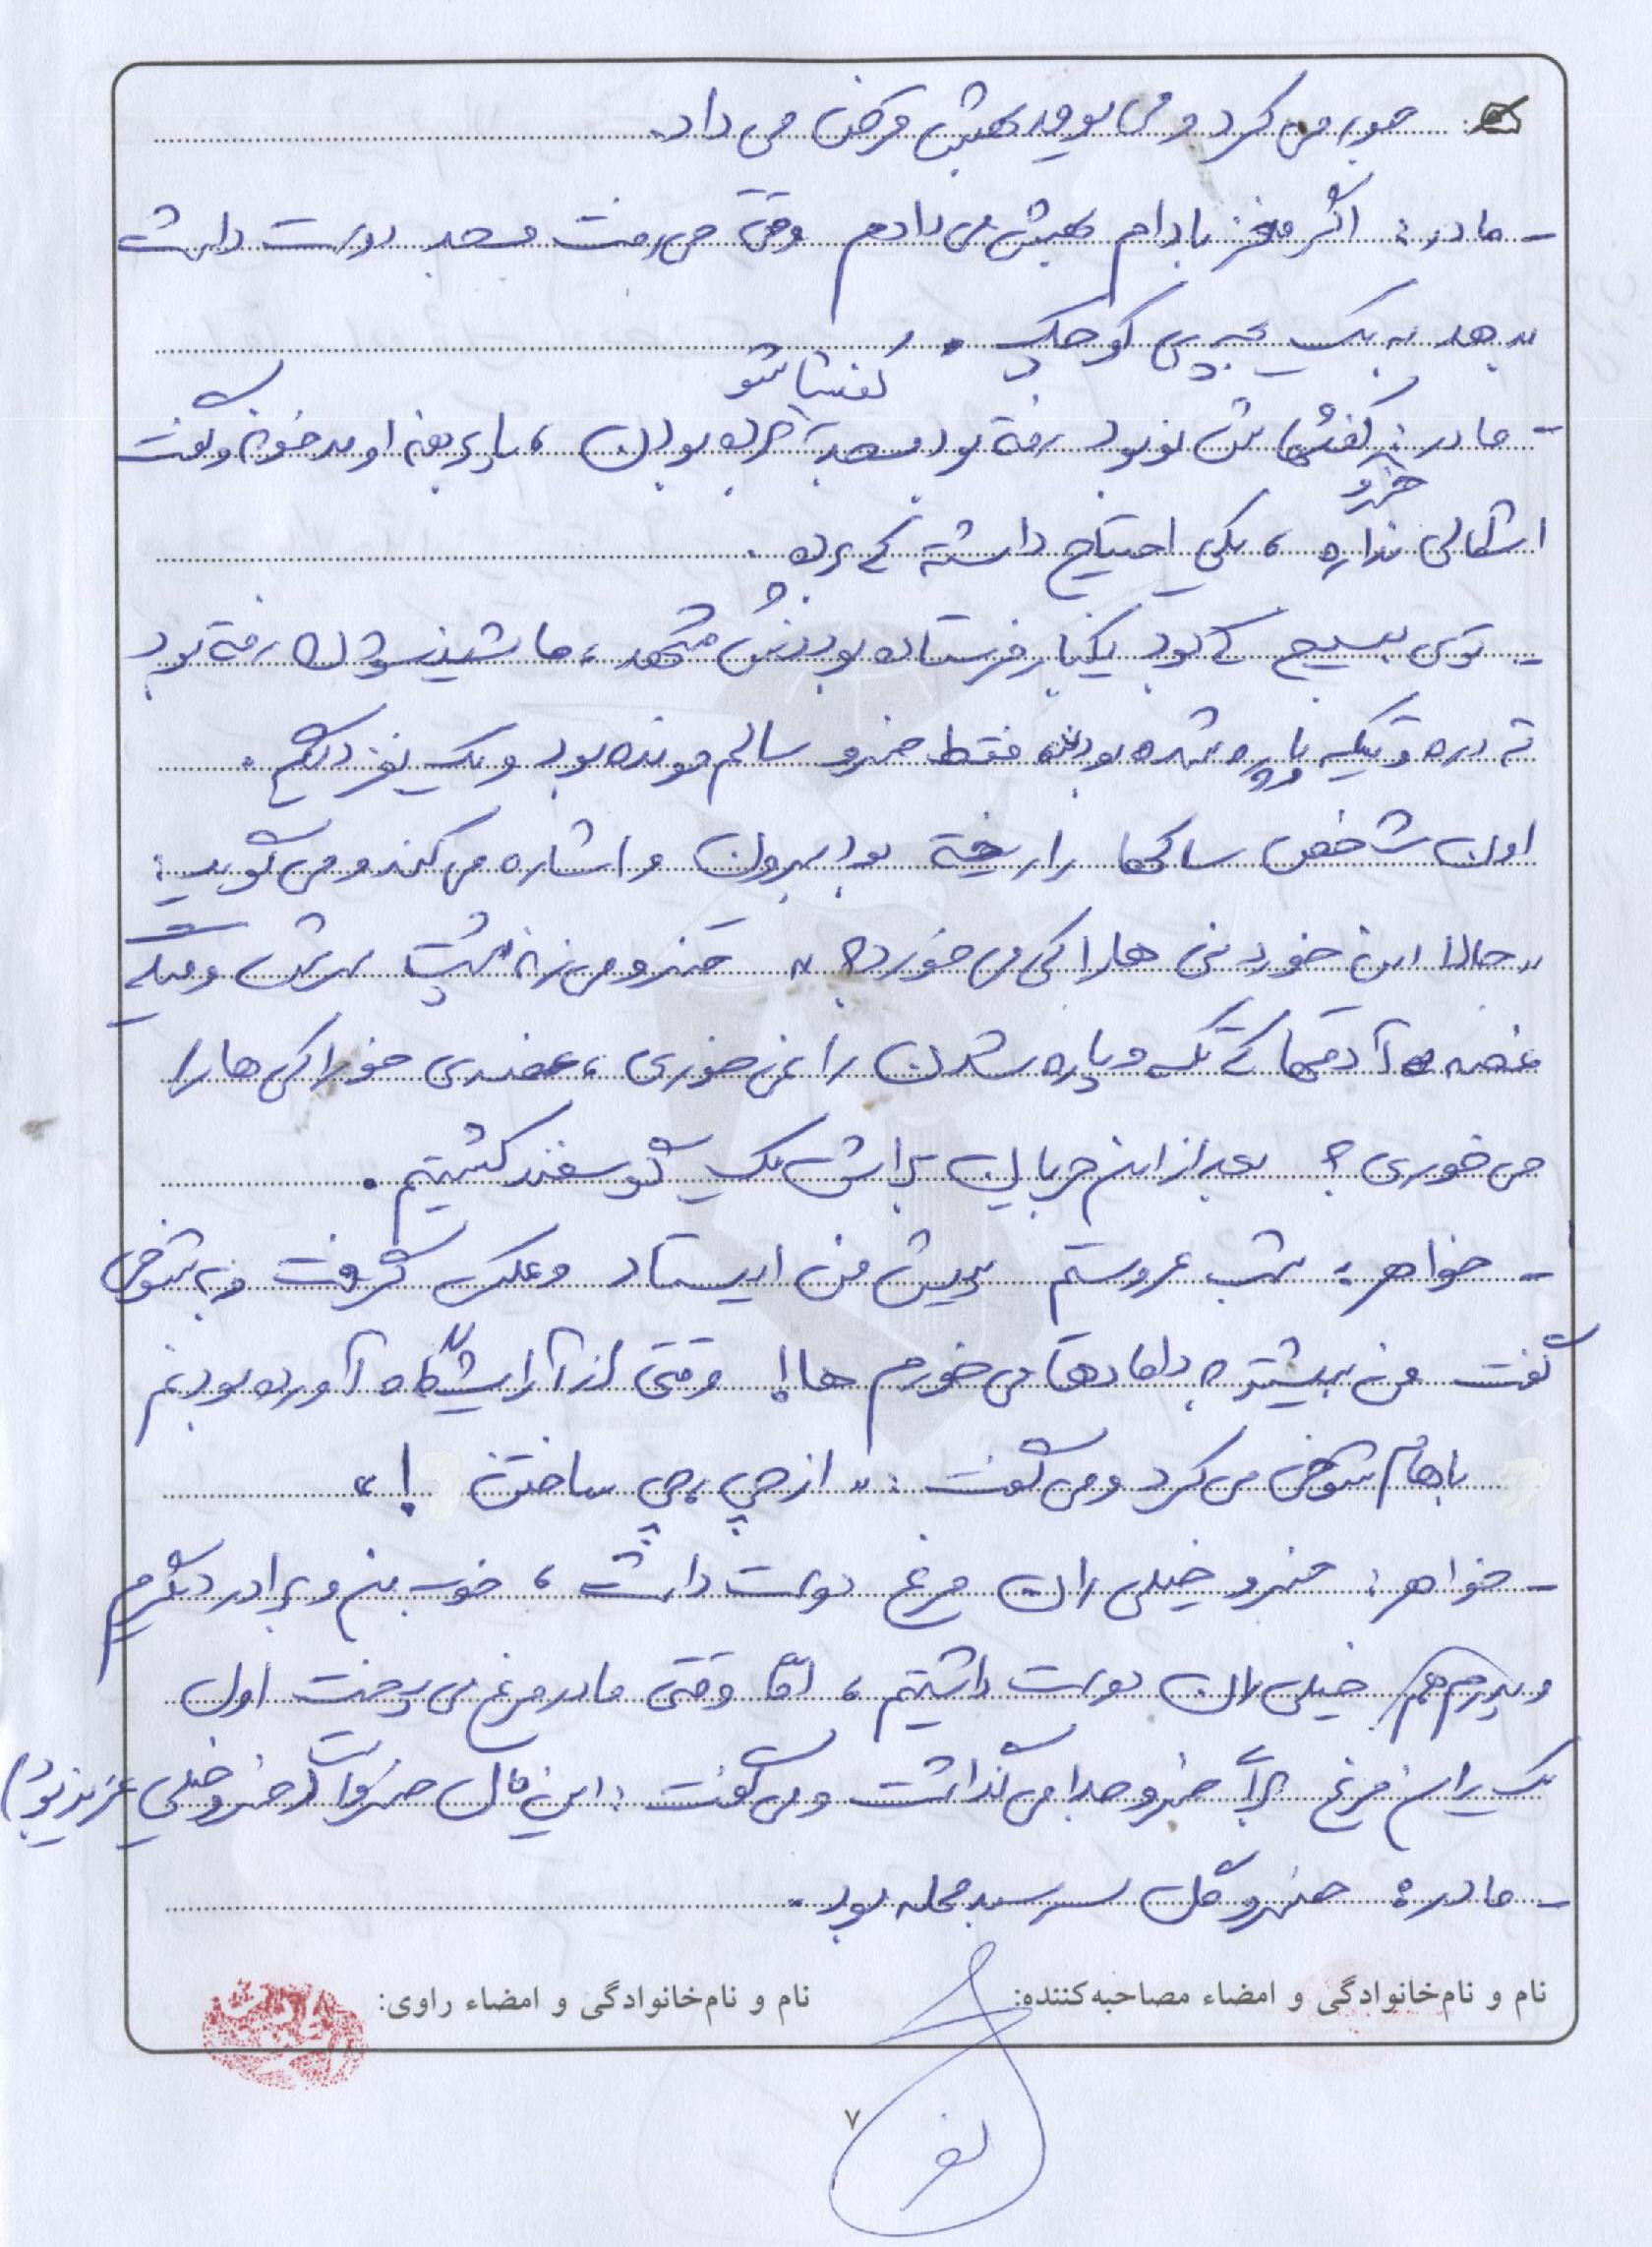 جور می کرد و می یومد بهش قرض می داد.
- مادر: اگر مغز بادام بهش می دادم وقتی می رفت مسجد دوست داشت
بدهد به یک بچه ی کوچک.
کفشاشو
- مادر: کفشهاش نو بود رفته بود مسجد برده بودن، پا برهنه اومد خونه و گفت
خسرو
اشکالی نداره، یکی احتیاج داشته که برده.
- توی بسیج که بود یکبار فرستاده بودنش مشهد، ماشینشون رفته بود
ته دره و تیکه پاره شده بودن فقط خسرو سالم مونده بود و یک نفر دیگه.
اون شخص ساکها را ریخته بود بیرون و اشاره می کند و می گوید:
«حالا این خوردنی ها را کی می خورد؟» خسرو می زنه پشت سرش و میگه
غصه آدمها که تکه و پاره شدن را نمی خوری، غصه ی خوراکی ها را
می خوری؟ بعد از این جریان براش یک گوسفند کشتیم.
- خواهر: شب عروسیم پیش من ایستاد و عکس گرفت و به شوخی
گفت من بیشتر به دامادها می خورم ها! وقتی از آرایشگاه آورده بودنم
باهام شوخی می کرد و می گفت: «از چی چی ساختن!»
- خواهر: خسرو خیلی ران مرغ دوست داشت، خوب منم و برادر دیگرم
و پدرم هم خیلی ران دوست داشتیم، امّا وقتی مادر مرغ می پخت اول
یک ران مرغ برای خسرو جدا می گذاشت و می گفت: این مال خسرو است (خسرو خیلی عزیز بود)
- مادر: خسرو گل سر سبد محله بود.
نام و نام‌خانوادگی و امضاء مصاحبه‌کننده:
نام و نام‌خانوادگی و امضاء راوی:
۷